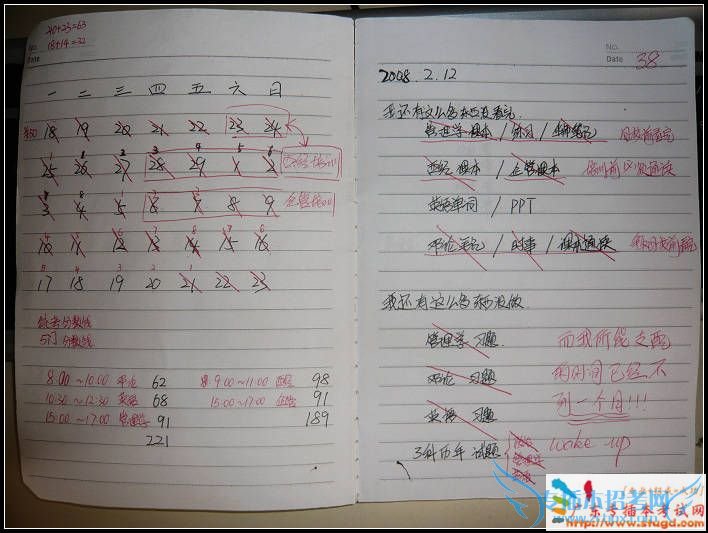 40+23=63
18+14=32
No.
Date
一 二 三 四 五 六 日
18 19 20 21 22 23 24
25 26 27 28 29 1 2
3 4 5 6 7 8 9
10 11 12 13 14 15 16
17 18 19 20 21 22 23
统考分数线
5门分数线
8:00~10:00 邓论 62
10:30~12:30 英语 68
15:00~17:00 管理学 91
221
9:00~11:00 98
15:00~17:00 企管 91
189
No.
Date 38
2008.2.12
我还有这么多东西没看完
管理学课本/练习/
课本/企管课本
英语单词/PPT
邓论笔记/时事/课本通读
我还有这么多东西没做
管理学 习题
邓论 习题
英语 习题
3科历年试题
管理学
英语
而我所能支配
的时间已经不
到一个月!!!
wake up
专插本招考网
广东专插本考试网
http://www.stugd.com